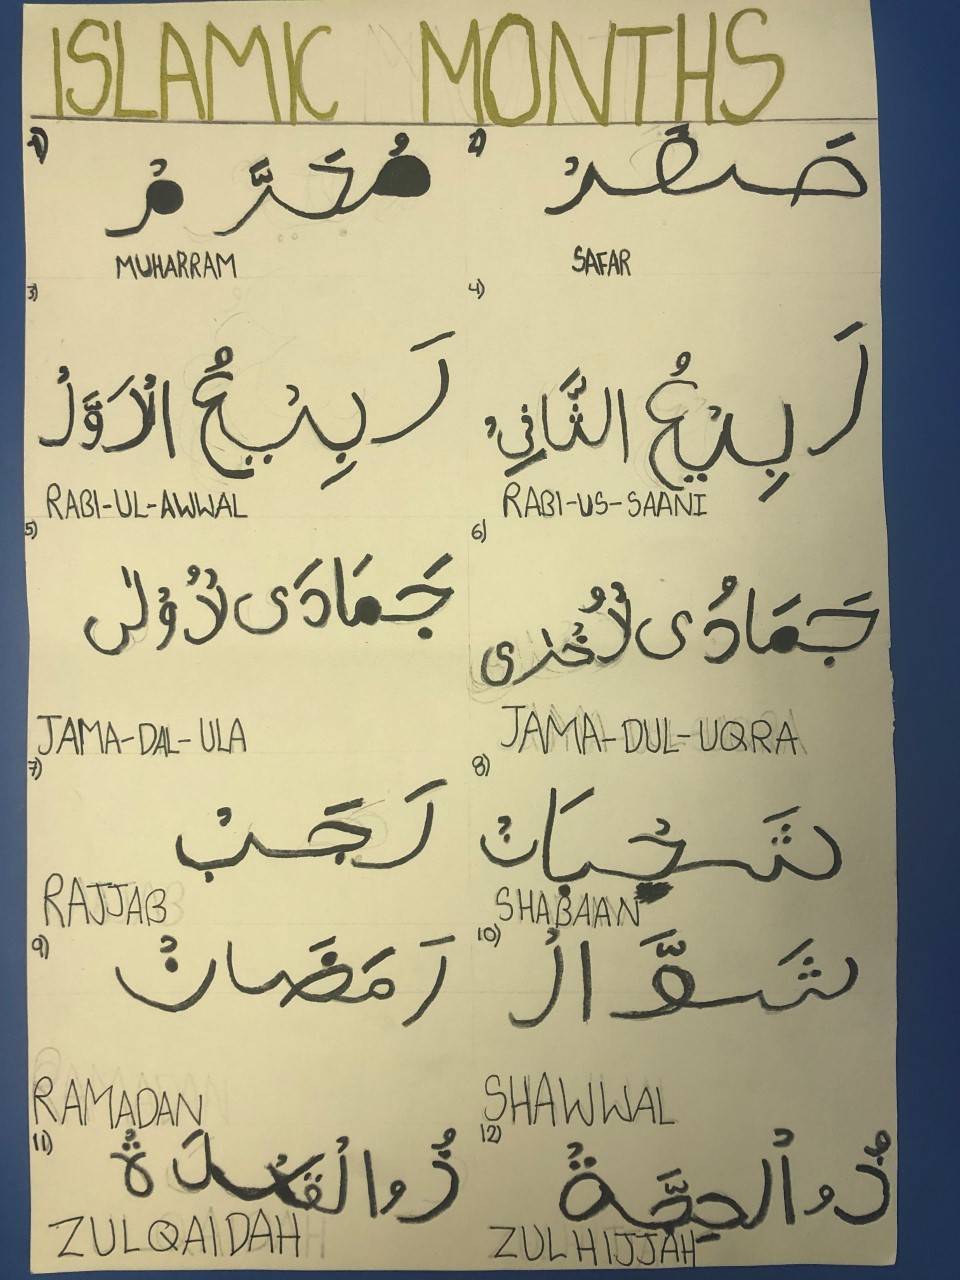 ISLAMIC MONTHS
1) مُحَرَّمْ
MUHARRAM
2) صَفَرْ
SAFAR
3) رَبِيْعُ الْاَوَّلْ
RABI-UL-AWWAL
4) رَبِيْعُ الثَّانِيْ
RABI-US-SAANI
5) جَمَادَى لْاُوْلٰى
JAMA-DAL-ULA
6) جَمَادُى لْاُخْرٰى
JAMA-DUL-UQRA
7) رَجَبْ
RAJJAB
8)
SHABAAN
9) رَمَضَانْ
RAMADAN
10) شَوَّالْ
SHAWWAL
11) ذُوالْقَعْدَةْ
ZULQAIDAH
12) ذُوالْحِجَّةْ
ZULHIJJAH